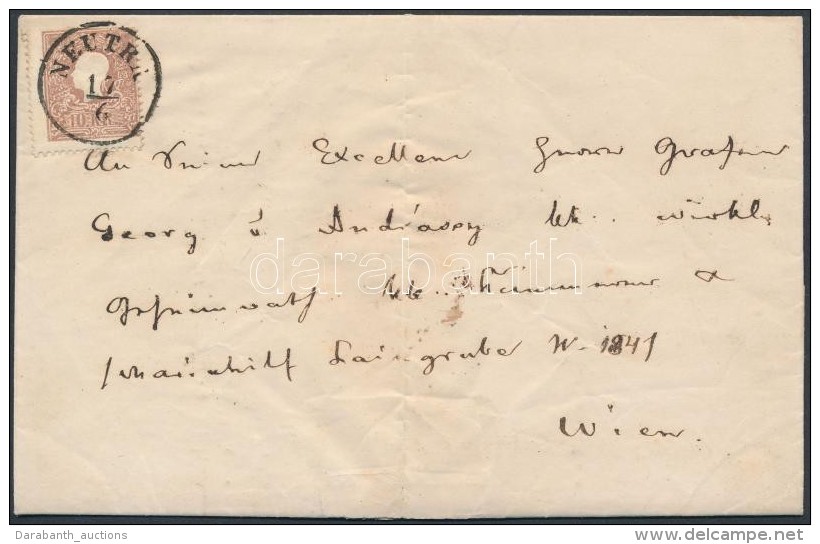 NEUTRA
10
6
10 KR
An Seine Excellenz Herrn Grafen
Georg v. Andrássy kk. wirkl.
Geheimrath kk. Kämmerer &
Mariahilf Laimgrube N-184/
Wien.
darabanth
Darabanth_auctions
delcampe.net